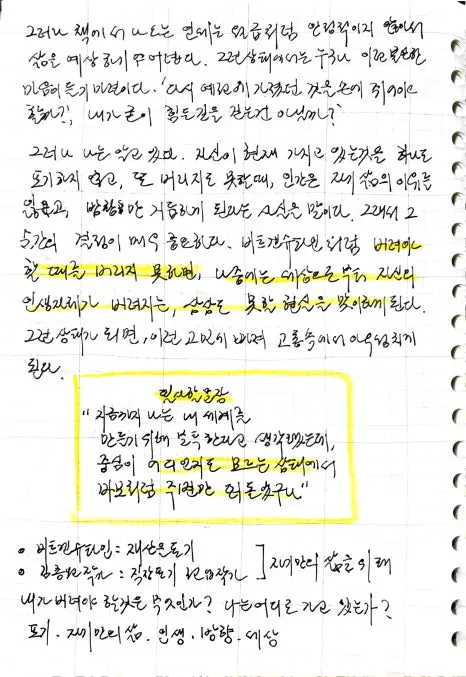 그러나 책에서 나오는 인세는 월급처럼 안정적이지 않아서
삶을 예상하기 어려웠다. 그런 상태에서는 누구나 이런 불안한
마음이 들기 마련이다. '다시 예전에 가졌던 것을 손에 쥐어야
할까?', '내가 굳이 힘든 길을 걷는건 아닐까?'
그러나 나는 알고 있다. 자신이 현재 가지고 있는것을 하나도
포기하지 않고, 또 버리지도 못할 때, 인간은 자기 삶의 이유를
잃고, 방황만 거듭하게 된다는 사실을 말이다. 그래서 그
순간의 결정이 매우 중요하다. 비트겐슈타인처럼 버려야
할 때를 버리지 못하면, 나중에는 세상으로부터 자신의
인생자체가 버려지는, 상상도 못할 현실을 맞이하게 된다.
그런 상태가 되면, 이런 고민에 빠져 고통속에서 아우성치게
된다.
필사할 문장
"지금까지 나는 내 세계를
만들기 위해 노력한다고 생각했는데,
중심이 어디인지도 모르는 상태에서
바보처럼 주변만 떠돌았구나"
• 비트겐슈타인 : 재산을 포기
• 김종원 작가 : 직장포기 전업작가 ] 자기만의 삶을 위해
내가 버려야 할것은 무엇인가? 나는 어디로 가고 있는가?
포기. 자기만의 삶. 인생. 방향. 세상